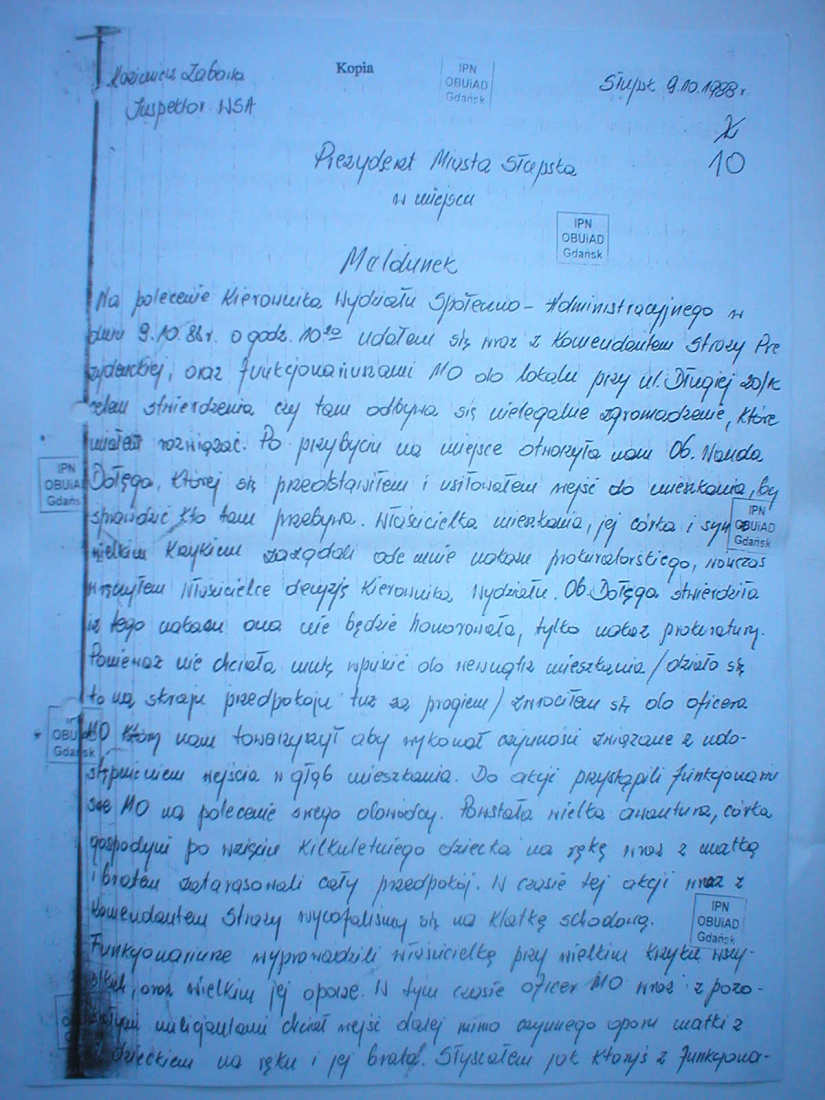 Kazimierz Zabora
Inspektor WSA
Kopia
IPN
OBUiAD
Gdańsk
Słupsk 9.10.1988 r
10
Prezydent Miasta Słupska
w miejscu
IPN
OBUiAD
Gdańsk
Meldunek
Na polecenie Kierownika Wydziału Społeczno - Administracyjnego w
dniu 9.10.88r. o godz. 10 udałem się wraz z Komendantem Straży Pre
zydenckiej, oraz funkcjonariuszami MO do lokalu przy ul. Długiej
celem stwierdzenia czy tam odbywa się nielegalne zgromadzenie, które
miałem rozwiązać. Po przybyciu na miejsce otworzyła nam Ob. Wanda
IPN
OBUiA
Gdańs
Dołęga, której się przedstawiłem i usiłowałem wejść do mieszkania, by
sprawdzić kto tam przebywa. Właścicielka mieszkania, jej córka i syn
IPN
OBUiAD
Gdańsk
wielkim krzykiem zażądali ode mnie nakazu prokuratorskiego, wówczas
wręczyłem właścicielce decyzję Kierownika Wydziału. Ob. Dołęga stwierdziła
iż tego nakazu ona nie będzie honorowała, tylko nakaz prokuratury.
Ponieważ nie chciała mnie wpuścić do wewnątrz mieszkania /działo się
to na skraju przedpokoju tuż za progiem/ zwróciłem się do oficera
OBU
Gdańsk
MO który nam towarzyszył aby wykonał czynności związane z udo-
stępnieniem wejścia w głąb mieszkania. Do akcji przystąpili funkcjonariu
sze MO na polecenie swego dowódcy. Powstała wielka awantura, córka
gospodyni po wzięciu kilkuletniego dziecka na rękę wraz z matką
i bratem zatarasowali cały przedpokój. W czasie tej akcji wraz z
Komendantem Straży wycofaliśmy się na klatkę schodową.
IPN
OBUiAD
Gdańsk
Funkcjonariusze wyprowadzili właścicielkę przy wielkim krzyku wszy-
stkich, oraz wielkim jej oporze. W tym czasie oficer MO wraz z pozo-
stałymi milicjantami chciał wejść dalej mimo czynnego oporu matki z
dzieckiem na ręku i jej brata. Słyszałem jak któryś z funkcjona-